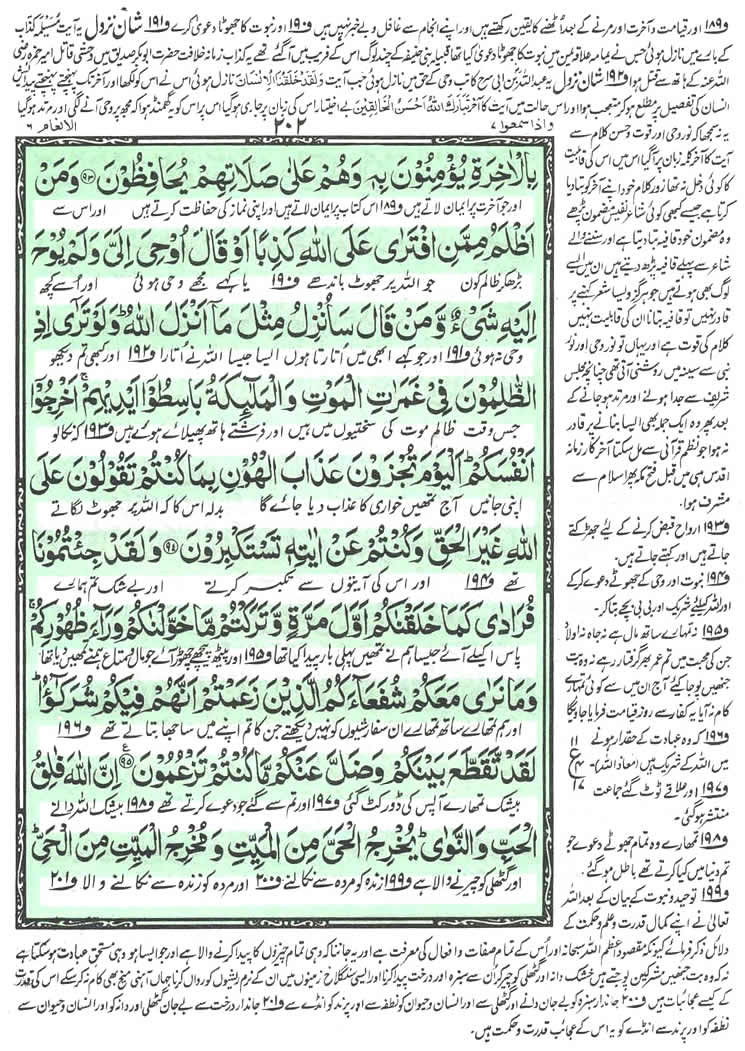 و۱۸۹ اور قیامت و آخرت اور مرنے کے بعد اُٹھنے کا یقین رکھتے ہیں اور اپنے انجام سے غافل و بے خبر نہیں ہیں و۱۹۰ اور نبوت کا جھوٹا دعویٰ کرے و۱۹۱ شان نزول یہ آیت مسیلمہ کذاب
کے بارے میں نازل ہوئی جس نے یمامہ علاقہ یمن میں نبوت کا جھوٹا دعویٰ کیا تھا قبیلہ بنی حنیفہ کے چند لوگ اس کے فریب میں آگئے تھے یہ کذاب زمانہ خلافت حضرت ابوبکر صدیق میں وحشی قاتل امیر حمزہ رضی
اللہ عنہ کے ہاتھ سے قتل ہوا و۱۹۲ شان نزول یہ عبداللہ بن ابی سرح کاتب وحی کے حق میں نازل ہوئی جب آیت وَلَقَدْ خَلَقْنَا الْاِنْسَانَ نازل ہوئی اس نے اس کو لکھا اور آخر تک پہنچتے پہنچتے پیدائش
انسان کی تفصیل پر مطلع ہو کر متعجب ہوا اور اس حالت میں آیت کا آخر تَبَارَكَ اللّٰهُ اَحْسَنُ الْخَالِقِيْنَ بے اختیار اس کی زبان پر جاری ہوگیا اس پر اس کو یہ گھمنڈ ہوا کہ مجھ پر وحی آنے لگی اور مرتد ہوگیا
واذا سمعوا ۷
۲۰۲
الانعام ۶
بِالْاٰخِرَةِ يُؤْمِنُوْنَ بِهٖ وَهُمْ عَلٰى صَلَاتِهِمْ يُحَافِظُوْنَ ﴿۹۳﴾ وَمَنْ
اور جو آخرت پر ایمان لاتے ہیں و۱۸۹ اس کتاب پر ایمان لاتے ہیں اور اپنی نماز کی حفاظت کرتے ہیں اور اس سے
اَظْلَمُ مِمَّنِ افْتَرٰى عَلَى اللّٰهِ كَذِبًا اَوْ قَالَ اُوْحِىَ اِلَىَّ وَلَمْ يُوْحَ
بڑھ کر ظالم کون جو اللہ پر جھوٹ باندھے و۱۹۰ یا کہے مجھے وحی ہوئی اور اُسے کچھ
اِلَيْهِ شَىْءٌ وَّمَنْ قَالَ سَاُنْزِلُ مِثْلَ مَآ اَنْزَلَ اللّٰهُ ؕ وَلَوْ تَرٰٓى اِذِ
وحی نہ ہوئی و۱۹۱ اور جو کہے ابھی میں اُتارتا ہوں ایسا جیسا اللہ نے اُتارا و۱۹۲ اور کبھی تم دیکھو
الظّٰلِمُوْنَ فِىْ غَمَرٰتِ الْمَوْتِ وَالْمَلٰٓئِكَةُ بَاسِطُوْٓا اَيْدِيْهِمْ ۚ اَخْرِجُوْٓا
جس وقت ظالم موت کی سختیوں میں ہیں اور فرشتے ہاتھ پھیلائے ہوئے ہیں و۱۹۳ کہ نکالو
اَنْفُسَكُمْ ؕ اَلْيَوْمَ تُجْزَوْنَ عَذَابَ الْهُوْنِ بِمَا كُنْتُمْ تَقُوْلُوْنَ عَلَى
اپنی جانیں آج تمھیں خواری کا عذاب دیا جائے گا بدلہ اس کا کہ اللہ پر جھوٹ لگاتے
اللّٰهِ غَيْرَ الْحَقِّ وَكُنْتُمْ عَنْ اٰيٰتِهٖ تَسْتَكْبِرُوْنَ ﴿۹۴﴾ وَلَقَدْ جِئْتُمُوْنَا
تھے و۱۹۴ اور اس کی آیتوں سے تکبر کرتے اور بے شک تم ہمارے
فُرَادٰى كَمَا خَلَقْنٰكُمْ اَوَّلَ مَرَّةٍ وَّتَرَكْتُمْ مَّا خَوَّلْنٰكُمْ وَرَآءَ ظُهُوْرِكُمْ ۚ
پاس اکیلے آئے جیسا ہم نے تمھیں پہلی بار پیدا کیا تھا و۱۹۵ اور پیٹھ پیچھے چھوڑ آئے جو مال و متاع ہم نے تمھیں دیا تھا
وَمَا نَرٰى مَعَكُمْ شُفَعَآءَكُمُ الَّذِيْنَ زَعَمْتُمْ اَنَّهُمْ فِيْكُمْ شُرَكٰٓؤُا ؕ
اور ہم تمھارے ساتھ تمھارے ان سفارشیوں کو نہیں دیکھتے جن کا تم اپنے میں ساجھا بتاتے تھے و۱۹۶
لَقَدْ تَّقَطَّعَ بَيْنَكُمْ وَضَلَّ عَنْكُمْ مَّا كُنْتُمْ تَزْعُمُوْنَ ﴿۹۵﴾ اِنَّ اللّٰهَ فَالِقُ
بیشک تمھارے آپس کی ڈور کٹ گئی و۱۹۷ اور تم سے گئے جو دعوے کرتے تھے و۱۹۸ بیشک اللہ دانے
الْحَبِّ وَالنَّوٰى ؕ يُخْرِجُ الْحَىَّ مِنَ الْمَيِّتِ وَمُخْرِجُ الْمَيِّتِ مِنَ الْحَىِّ ؕ
اور گٹھلی کو چیرنے والا ہے و۱۹۹ زندہ کو مردہ سے نکالنے و۲۰۰ اور مردہ کو زندہ سے نکالنے والا و۲۰۱
یہ نہ سمجھا کہ نور وحی اور قوت و حسن کلام سے
آیت کا آخر کلمہ زبان پر آگیا اس میں اس کی قابلیت
کا کوئی دخل نہ تھا زور کلام خود اپنے آخر کو بتا دیا
کرتا ہے جیسے کبھی کوئی شاعر نفیس مضمون پڑھے
وہ مضمون خود قافیہ بتا دیتا ہے اور سننے والے
شاعر سے پہلے قافیہ پڑھ دیتے ہیں ان میں ایسے
لوگ بھی ہوتے ہیں جو ہرگز ویسا شعر کہنے پر
قادر نہیں تو قافیہ بتانا ان کی قابلیت نہیں
کلام کی قوت ہے اور یہاں تو نور وحی اور نور
نبی سے سینہ میں روشنی آتی تھی چنانچہ مجلس
شریف سے جدا ہونے اور مرتد ہو جانے کے
بعد پھر وہ ایک جملہ بھی ایسا بنانے پر قادر
نہ ہوا جو نظم قرآنی سے مل سکتا آخر کار زمانہ
اقدس ہی میں قبل فتح مکہ پھر اسلام سے
مشرف ہوا۔
و۱۹۳ ارواح قبض کرنے کے لیے جھڑکتے
جاتے ہیں اور کہتے جاتے ہیں۔
و۱۹۴ نبوت اور وحی کے جھوٹے دعوے کرکے
اور اللہ کیلئے شریک اور بی بی بچے بتا کر۔
و۱۹۵ نہ تمہارے ساتھ مال ہے نہ جاہ نہ اولاد
جن کی محبت میں تم عمر بھر گرفتار رہے نہ وہ بت
جنھیں پوجا کیے آج ان میں سے کوئی تمہارے
کام نہ آیا یہ کفار سے روز قیامت فرمایا جاوے گا
و۱۹۶ کہ وہ عبادت کے حقدار ہونے
میں اللہ کے شریک ہیں (معاذ اللہ)۔
و۱۹۷ اور علاقے ٹوٹ گئے جماعت
منتشر ہوگئی۔
و۱۹۸ تمہارے وہ تمام جھوٹے دعوے جو
تم دنیا میں کیا کرتے تھے باطل ہوگئے۔
و۱۹۹ توحید و نبوت کے بیان کے بعد اللہ
تعالیٰ نے اپنے کمال قدرت و علم و حکمت کے
ع
۱۱
۴
۱۷
دلائل ذکر فرمائے کیونکہ مقصود اعظم اللہ سبحانہ اور اُس کے تمام صفات و افعال کی معرفت ہے اور یہ جاننا کہ وہی تمام چیزوں کا پیدا کرنے والا ہے اور جو ایسا ہو وہی مستحق عبادت ہوسکتا ہے
نہ کہ وہ بت جنھیں مشرکین پوجتے ہیں خشک دانہ اور گٹھلی کو چیر کر اُن سے سبزہ اور درخت پیدا کرنا اور ایسی سنگلاخ زمینوں میں ان کے نرم ریشوں کو رواں کرنا جہاں آہنی میخ بھی کام نہ کر سکے اس کی قدرت
کے کیسے عجائبات ہیں و۲۰۰ جاندار سبزہ کو بے جان دانے اور گٹھلی سے اور انسان و حیوان کو نطفہ سے اور پرند کو انڈے سے و۲۰۱ جاندار درخت سے بے جان گٹھلی اور دانہ کو اور انسان و حیوان سے
نطفہ کو اور پرند سے انڈے کو یہ اس کے عجائب قدرت و حکمت ہیں۔